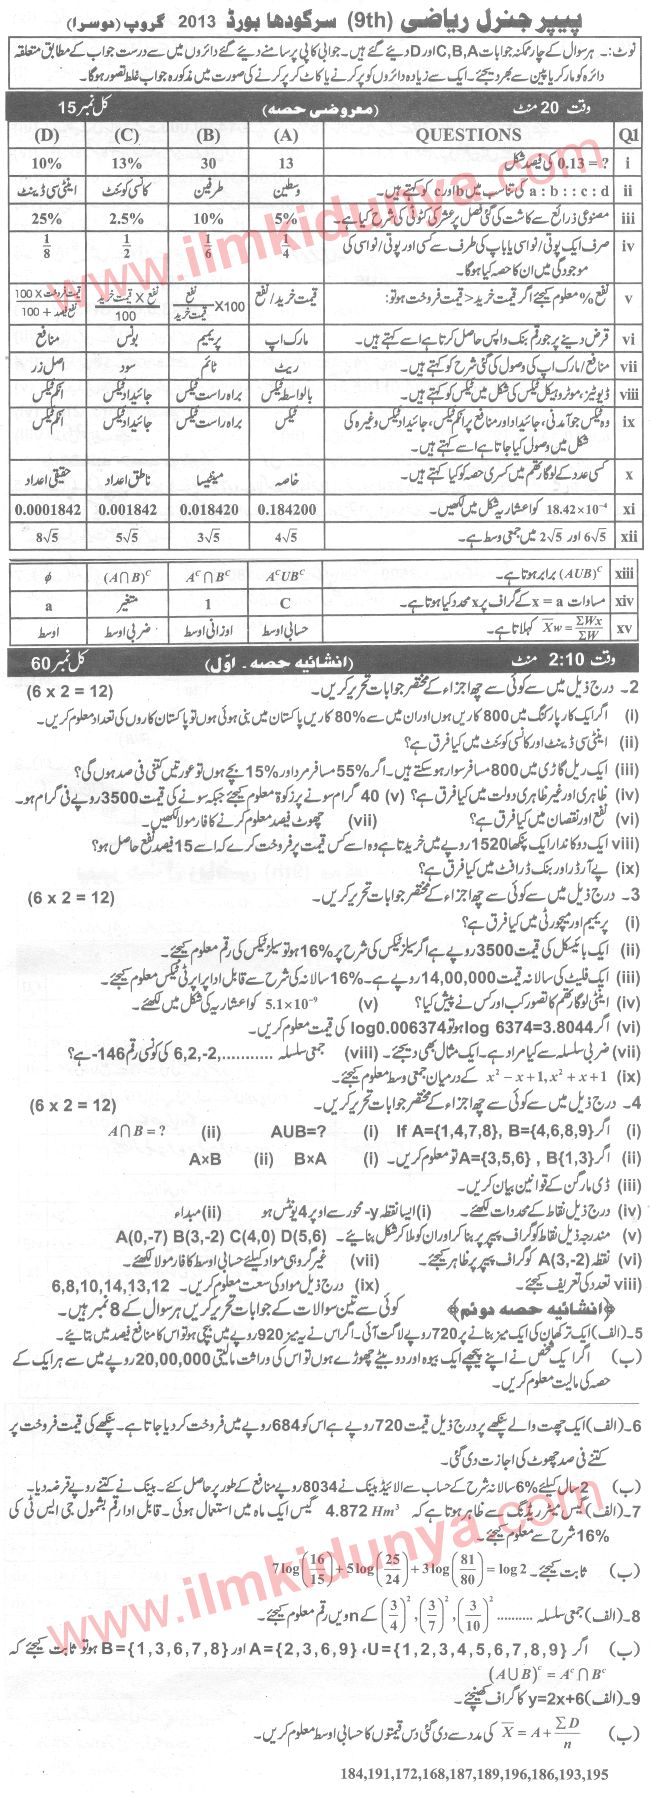 پیپر جنرل ریاضی (9th) سرگودھا بورڈ 2013 گروپ (دوسرا)
نوٹ:۔ ہر سوال کے چار ممکنہ جوابات C,B,A اور D دیئے گئے ہیں۔ جوابی کاپی پر سامنے دیئے گئے دائروں میں سے درست جواب کے مطابق متعلقہ
دائرہ کو مارکر یا پین سے بھر دیجئے۔ ایک سے زیادہ دائروں کو پر کرنے یا کاٹ کر پر کرنے کی صورت میں مذکورہ جواب غلط تصور ہوگا۔
وقت 20 منٹ (معروضی حصہ) کل نمبر 15
Q.1 QUESTIONS (A) (B) (C) (D)
i 0.13 = ? کی فیصد شکل 13 30 13% 10%
ii a : b : : c : d کی تناسب میں b اور c کو کہتے ہیں۔ وسطین طرفین کانسی کوئنٹ اینٹی سی ڈینٹ
iii مصنوعی ذرائع سے کاشت کی گئی فصل پر عشر کی کٹوتی کی شرح کیا ہے۔ 5% 10% 2.5% 25%
iv صرف ایک پوتی/نواسی یا باپ کی طرف سے کسی اور پوتی/نواسی کی موجودگی میں ان کا حصہ کیا ہوگا۔ 1/4 1/6 1/2 1/8
v نفع % معلوم کیجئے اگر قیمت خرید < قیمت فروخت ہو تو: قیمت خرید/نفع نفع/قیمت خرید X100 نفع X قیمت خرید/100 قیمت فروخت x 100/نفع فیصد + 100
vi قرض دینے پر جو رقم بنک واپس حاصل کرتا ہے اسے کہتے ہیں۔ مارک اپ پریمیم بونس منافع
vii منافع/مارک اپ کی وصول کی گئی شرح کو کہتے ہیں۔ ریٹ ٹائم سود اصل زر
viii ڈیوٹیز، موٹر وہیکل ٹیکس کی شکل میں ٹیکس کو کہتے ہیں۔ بالواسطہ ٹیکس براہ راست ٹیکس جائیداد ٹیکس انکم ٹیکس
ix وہ ٹیکس جو آمدنی، جائیداد اور منافع پر انکم ٹیکس، جائیداد ٹیکس وغیرہ کی شکل میں وصول کیا جاتا ہے اسے کہتے ہیں۔ ٹیکس براہ راست ٹیکس جائیداد ٹیکس انکم ٹیکس
x کسی عدد کے لوگارتھم میں کسری حصہ کو کیا کہتے ہیں۔ خاصہ مینٹیسا ناطق اعداد حقیقی اعداد
xi 18.42×10⁻⁴ کو اعشاریہ شکل میں لکھیں۔ 0.184200 0.018420 0.001842 0.0001842
xii 6√5 اور 2√5 میں جمعی وسط ہے۔ 4√5 3√5 5√5 8√5
xiii (AUB)ᶜ برابر ہوتا ہے۔ AᶜUBᶜ Aᶜ∩Bᶜ (A∩B)ᶜ ϕ
xiv مساوات x = a کے گراف پر x محدد کیا ہوتا ہے۔ C 1 متغیر a
xv X̄w = ΣWx/ΣW کہلاتا ہے۔ حسابی اوسط اوزانی اوسط ضربی اوسط اوسط
وقت 2:10 منٹ (انشائیہ حصہ ۔ اوّل) کل نمبر 60
2۔ درج ذیل میں سے کوئی سے چھ اجزاء کے مختصر جوابات تحریر کریں۔ (6 x 2 = 12)
(i) اگر ایک کار پارکنگ میں 800 کاریں ہوں اور ان میں سے 80% کاریں پاکستان میں بنی ہوئی ہوں تو پاکستان کاروں کی تعداد معلوم کریں۔
(ii) اینٹی سی ڈینٹ اور کانسی کوئنٹ میں کیا فرق ہے؟
(iii) ایک ریل گاڑی میں 800 مسافر سوار ہو سکتے ہیں۔ اگر 55% مسافر مرد اور 15% بچے ہوں تو عورتیں کتنی فی صد ہوں گی؟
(iv) ظاہری اور غیر ظاہری دولت میں کیا فرق ہے؟ (v) 40 گرام سونے پر زکوۃ معلوم کیجئے جبکہ سونے کی قیمت 3500 روپے فی گرام ہو۔
(vi) نفع اور نقصان میں کیا فرق ہے؟ (vii) چھوٹ فیصد معلوم کرنے کا فارمولا لکھیں۔
(viii) ایک دوکاندار ایک پنکھا 1520 روپے میں خریدتا ہے وہ اسے کس قیمت پر فروخت کرے کہ اسے 15 فیصد نفع حاصل ہو؟
(ix) پے آرڈر اور بنک ڈرافٹ میں کیا فرق ہے؟
3۔ درج ذیل میں سے کوئی سے چھ اجزاء کے مختصر جوابات تحریر کریں۔ (6 x 2 = 12)
(i) پریمیم اور میچورٹی میں کیا فرق ہے؟
(ii) ایک بائیسکل کی قیمت 3500 روپے ہے اگر سیلز ٹیکس کی شرح 16% ہو تو سیلز ٹیکس کی رقم معلوم کیجئے۔
(iii) ایک فلیٹ کی سالانہ قیمت 14,00,000 روپے ہے۔ 16% سالانہ کی شرح سے قابل ادا پراپرٹی ٹیکس معلوم کیجئے۔
(iv) اینٹی لوگارتھم کا تصور کب اور کس نے پیش کیا؟ (v) 5.1×10⁻⁹ کو اعشاریہ کی شکل میں لکھئے۔
(vi) اگر log 6374=3.8044 ہو تو log0.006374 کی قیمت معلوم کریں۔
(vii) ضربی سلسلہ سے کیا مراد ہے۔ ایک مثال بھی دیجئے۔ (viii) جمعی سلسلہ 6,2,-2,........... کی کونسی رقم -146 ہے؟
(ix) x²−x+1, x²+x+1 کے درمیان جمعی وسط معلوم کیجئے۔
4۔ درج ذیل میں سے کوئی سے چھ اجزاء کے مختصر جوابات تحریر کریں۔ (6 x 2 = 12)
(i) اگر If A={1,4,7,8}, B={4,6,8,9} (i) AUB=? (ii) A∩B=?
(ii) اگر A={3,5,6} , B{1,3} تو معلوم کریں۔ (i) B×A (ii) A×B
(iii) ڈی مارگن کے قوانین بیان کریں۔
(iv) درج ذیل نقاط کے محددات لکھئے۔ (i) ایسا نقطہ y- محور سے اوپر 4 یونٹس ہو (ii) مبداء
(v) مندرجہ ذیل نقاط کو گراف پیپر پر بنا کر اور ان کو ملا کر شکل بنائیے۔ A(0,-7) B(3,-2) C(4,0) D(5,6)
(vi) نقطہ A(3,-2) کو گراف پیپر پر ظاہر کیجئے۔ (vii) غیر گروہی مواد کیلئے حسابی اوسط کا فارمولا لکھئے۔
(viii) تعدد کی تعریف کیجئے۔ (ix) درج ذیل مواد کی سعت معلوم کریں۔ 6,8,10,14,13,12
﴿انشائیہ حصہ دوئم﴾ کوئی سے تین سوالات کے جوابات تحریر کریں ہر سوال کے 8 نمبر ہیں۔
5۔ (الف) ایک ترکھان کی ایک میز بنانے پر 720 روپے لاگت آئی۔ اگر اس نے یہ میز 920 روپے میں بیچی ہو تو اس کا منافع فیصد میں بتائیے۔
(ب) اگر ایک شخص نے اپنے پیچھے ایک بیوہ اور دو بیٹے چھوڑے ہوں تو اس کی وراثت مالیتی 20,00,000 روپے میں سے ہر ایک کے
حصہ کی مالیت معلوم کریں۔
6۔ (الف) ایک چھت والے پنکھے پر درج ذیل قیمت 720 روپے ہے اس کو 684 روپے میں فروخت کر دیا جاتا ہے۔ پنکھے کی قیمت فروخت پر
کتنے فی صد چھوٹ کی اجازت دی گئی۔
(ب) 2 سال کیلئے 6% سالانہ شرح کے حساب سے الائیڈ بینک نے 8034 روپے منافع کے طور پر حاصل کئے۔ بینک نے کتنے روپے قرضہ دیا۔
7۔ (الف) گیس میٹر ریڈنگ سے ظاہر ہوتا ہے کہ 4.872 Hm³ گیس ایک ماہ میں استعمال ہوئی۔ قابل ادا رقم بشمول جی ایس ٹی کی
16% شرح سے معلوم کیجئے۔
(ب) ثابت کیجئے۔ 7log(16/15)+5log(25/24)+3log(81/80)=log2
8۔ (الف) جمعی سلسلہ .......... (3/4)², (3/7)², (3/10)² کے n ویں رقم معلوم کیجئے۔
(ب) اگر U={1,2,3,4,5,6,7,8,9}، A={2,3,6,9} اور B={1,3,6,7,8} ہو تو ثابت کیجئے کہ
(A∪B)ᶜ = Aᶜ∩Bᶜ
9۔ (الف) y=2x+6 کا گراف کھینچئے۔
(ب) X̄ = A + ΣD/n کی مدد سے دی گئی دس قیمتوں کا حسابی اوسط معلوم کریں۔
184,191,172,168,187,189,196,186,193,195
www.ilmkidunya.com
www.ilmkidunya.com